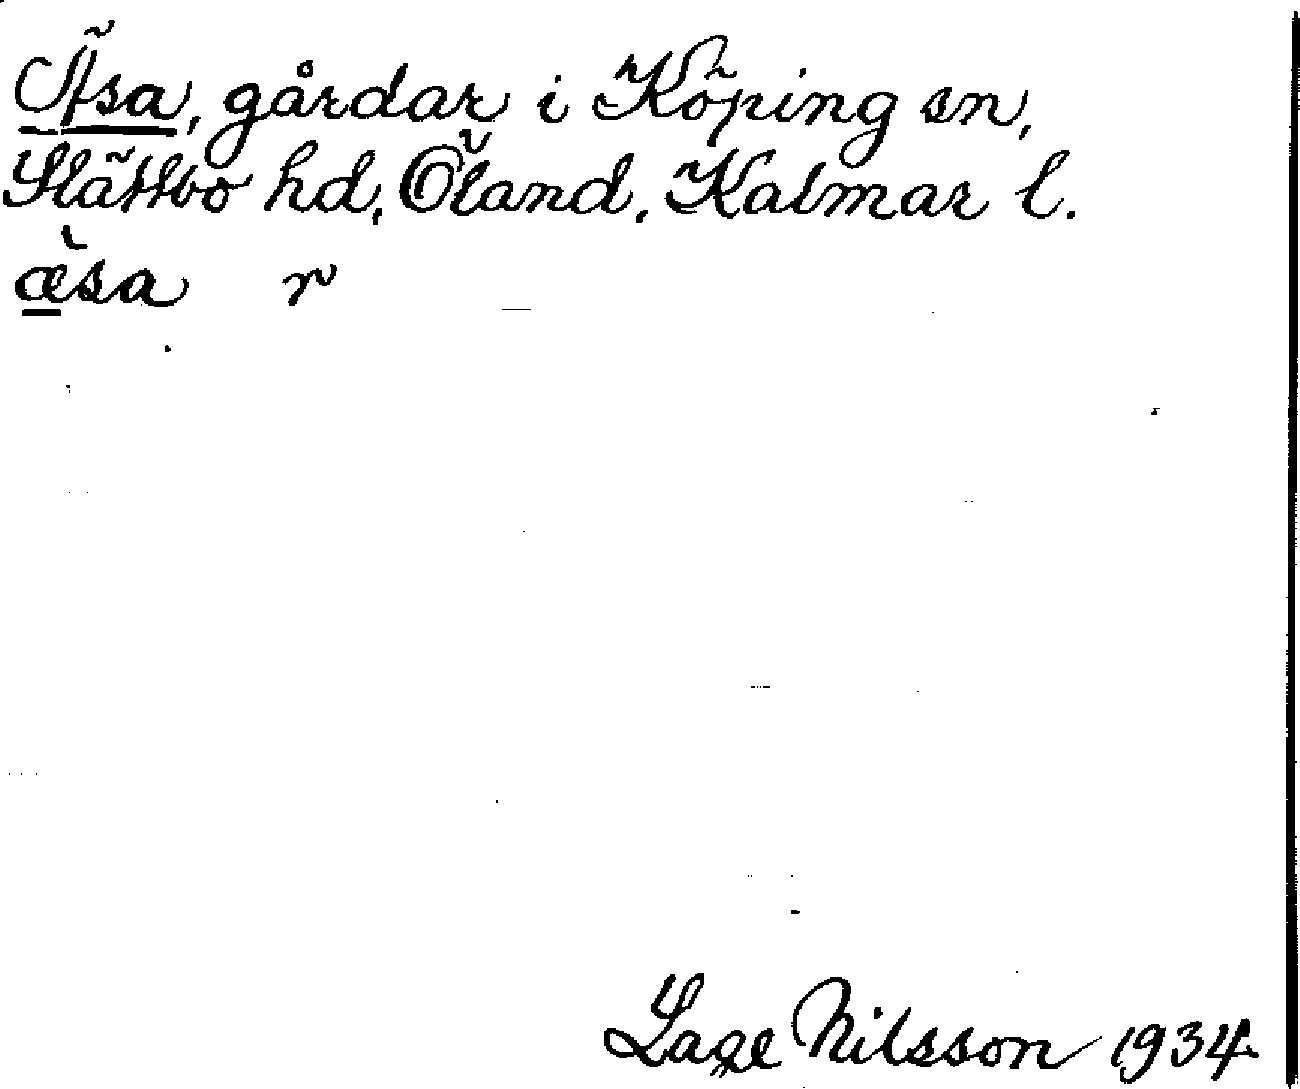 Äsa, gårdar i Köping sn,
Slättbo hd, Öland, Kalmar l.
æ̀sa r
Lage Nilsson 1934